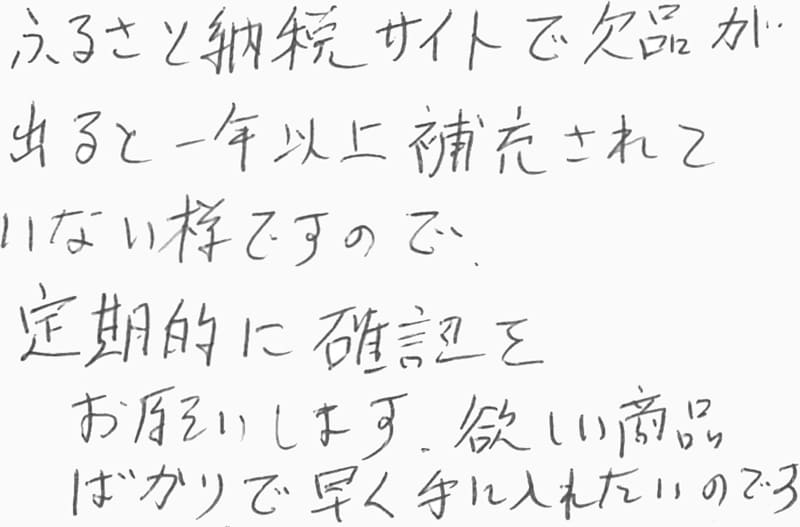 ふるさと納税サイトで欠品が
出ると一年以上補充されて
いない様ですので、
定期的に確認を
お願いします。欲しい商品
ばかりで早く手に入れたいのです